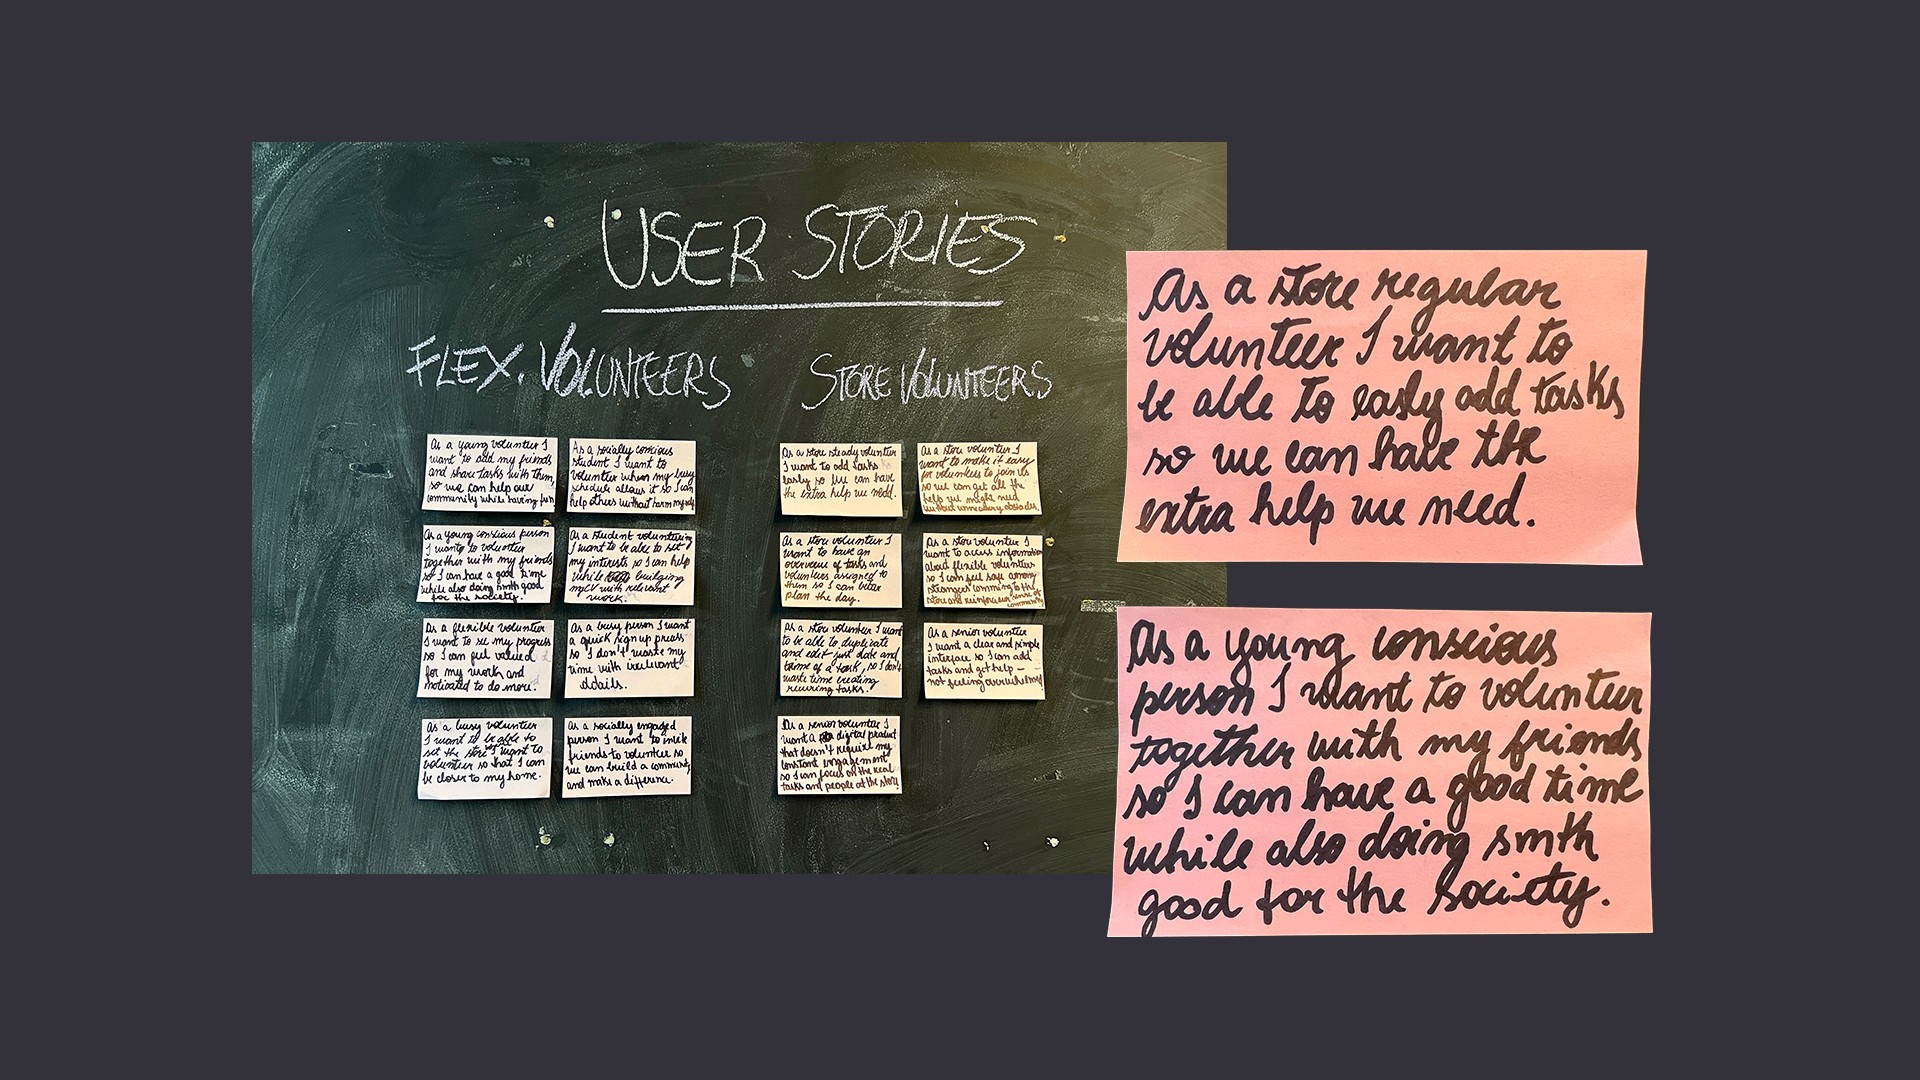 USER STORIES
FLEX. VOLUNTEERS
As a young volunteer I
want to add my friends
and share tasks with them,
so we can help our
community while having fun
As a socially conscious
student I want to
volunteer when my busy
schedule allows it so I can
help others without harm myself
As a young conscious person
I want to volunteer
together with my friends
so I can have a good time
while also doing smth good
for the society.
As a student volunteering
I want to be able to set
my interests so I can help
while building
my CV with relevant
work.
As a flexible volunteer
I want to see my progress
so I can feel valued
for my work and
motivated to do more.
As a busy person I want
a quick sign up press
so I don't waste my
time with irrelevant
details.
As a busy volunteer
I want to be able to
set the store I want to
volunteer so that I can
be closer to my home.
As a socially engaged
person I want to invite
friends to volunteer so
we can build a community
and make a difference.
STORE VOLUNTEERS
As a store steady volunteer
I want to add tasks
easly so we can have
the extra help we need.
As a store volunteer I
want to make it easy
for volunteers to join us
so we can get all the
help we might need
without unnecessary obstacles
As a store volunteer I
want to have an
overview of tasks and
volunteers assigned to
them so I can better
plan the day.
As a store volunteer I
want to access information
about flexible volunteers
so I can feel safe among
strangers comming to the
store and reinforce our sense of
community
As a store volunteer I want
to be able to duplicate
and edit just date and
time of a task, so I don't
waste time creating
recurring tasks.
As a senior volunteer
I want a clear and simple
interface so I can add
tasks and get help –
not feeling overwhelmed
As a senior volunteer I
want a digital product
that doesn't require my
constant engagement
so I can focus on the real
tasks and people at the store
As a store regular
volunteer I want to
be able to easly add tasks
so we can have the
extra help we need.
As a young conscious
person I want to volunteer
together with my friends
so I can have a good time
while also doing smth
good for the society.